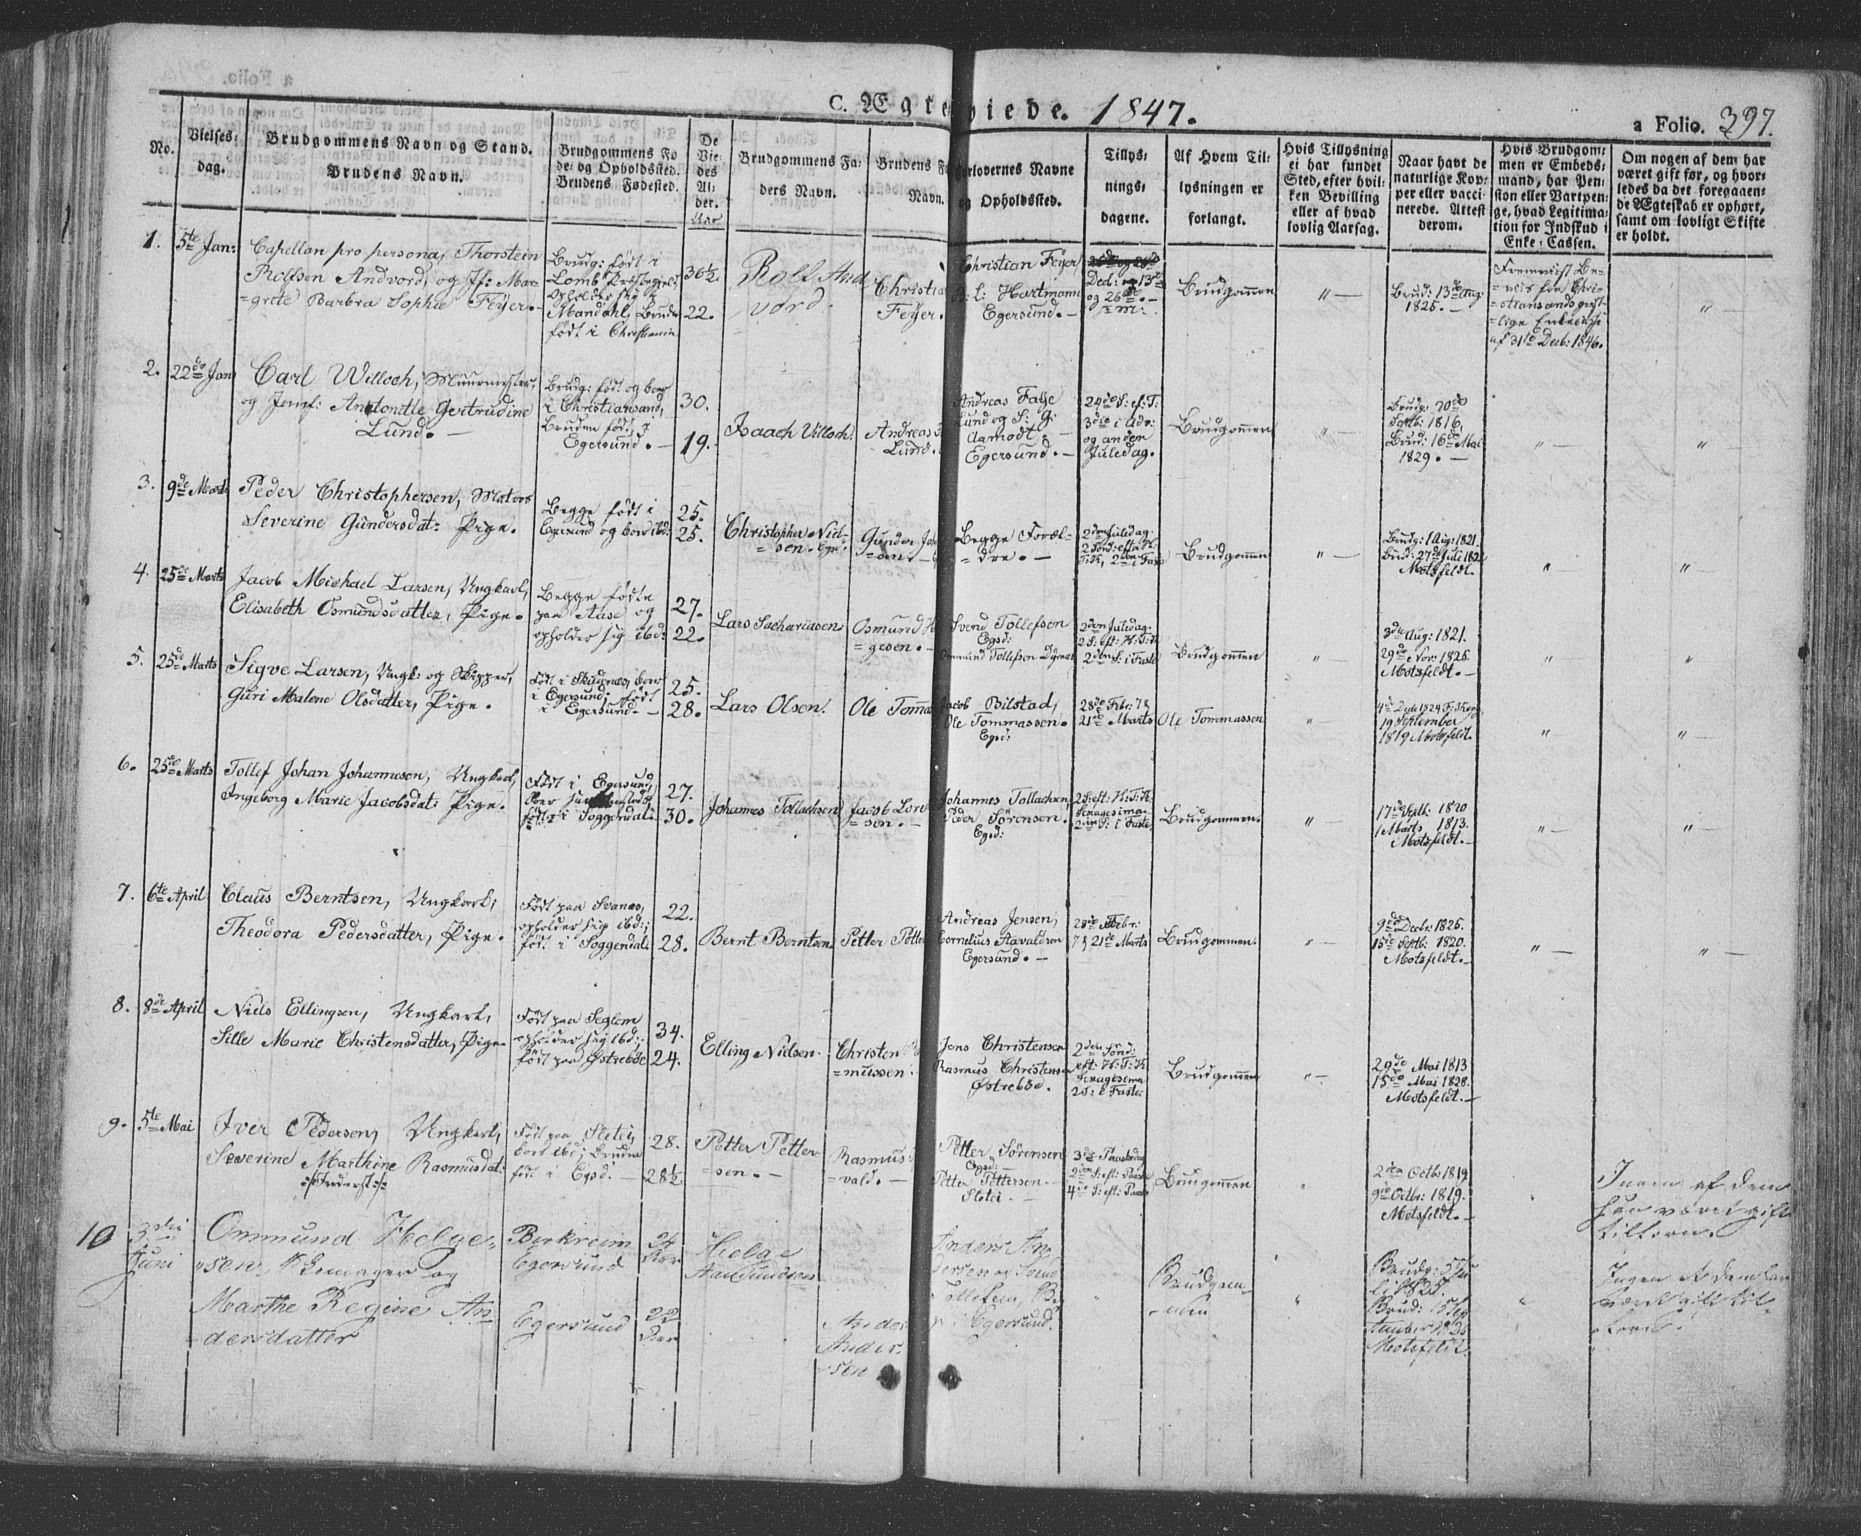 C. Ægteviede. 1847.
a Folio. 397.
No.
Vielses-
dag.
Brudgommens Navn og Stand.
Brudens Navn.
Brudgommens Fø
de- og Opholdssted.
Brudens Fødested.
De
Vie-
des
Al-
der.
Aar
Brudgommens Fa-
ders Navn.
Brudens F
Navn.
Forlovernes Navne
og Opholdssted.
Tillys-
nings-
dagene.
Af Hvem Til-
lysningen er
forlangt.
Hvis Tillysning
ei har fundet
Sted, efter hvil-
ken Bevilling
eller af hvad
lovlig Aarsag.
Naar havt de
naturlige Kop-
per eller vacci-
nerede. Attest
derom.
Hvis Brudgom-
men er Embeds-
mand, har Pen-
sion eller Vartpen-
ge, hvad Legitima-
tion for Indskud i
Enke-Cassen.
Om nogen af dem har
været gift før, og hvor-
ledes da det foregaaen-
de Ægteskab er ophørt,
samt om lovligt Skifte
er holdt.
1.
5te Jan:
Capellan pro persona, Thorstein
Rolfsen Andvord, og Jf: Mar-
=grete Barbra Sophie Feyer.
Brudg: født i
Lomb Præstegield,
opholder sig i
Mandahl, Brude
født i Christiania
36½.
22.
Rolf And
vord.
Christia
Feyer.
Christian Feyer
B: C: Hartmann
Egersund.
Dec: og 13de
og 26de
f: m:
Brudgommen
" —
Brud: 13de Aug:
1825. —
Fremvist Be-
=viis fra Chri-
=stiansands gejst-
=lige Enkecasse
af 31te Decb: 1846.
" —
2.
22de Jan
Carl Willoch, Muurmester,
og Jomf: Antonette Gertrudine
Lund. —
Brudg: født og boer
i Christiansand,
Bruden født i
Egersund. —
30.
19.
Isaach Villoch.
Andreas F
Lund.
Andreas Faye
Lund og S: G:
Aamodt,
Egersund. —
24de S: ef: T:
3die i Adv:
og anden
Juledag.
Brudgommen
" —
Brudg: 20de
Septb: 1816,
Brud: 16de Mai
1829. —
" —
" —
3.
9de Marts
Peder Christophersen, Matros
Severine Gundersdat: Pige.
Begge født i
Egersund og boer ibd:
25.
25.
Christopher Niel-
=sen. Egsd:
Gunder Joh
=sen. —
Begge Foræl-
=dre. —
2den Juledag:
2 Sønd: efter H:
T: K, 2den i Faste
Brudgommen
" —
Brudg: 1 Aug: 1821.
Brud: 27de Juli 1821
Motzfeldt.
" —
" —
4.
25de Marts
Jacob Michael Larsen, Ungkarl,
Elisabeth Osmundsdatter, Pige.
Begge fødte
paa Aase og
opholder sig ibd:
27.
22.
Lars Sachariasen
Osmund H
=gesen. —
Svend Tollefsen
Egsd:
Ommund Tollefsen
2den Juledag
2 S: eft: H: T: K
2den S: i Faste
Brudgommen
" —
3die Aug: 1821.
29de Nov: 1825.
Motzfeldt. —
" —
"
5.
25de Marts
Sigve Larsen, Ungk: og Skipper,
Guri Malene Olsdatter, Pige.
Født i Skudnæs, boer
i Egersund; født
i Egersund. —
25.
28.
Lars Olsen.
Ole Tomm
Jacob Bilstad,
Ole Tommassen.
Egsd:
28de Febr: 7 &
21de Marts
Ole Tommassen
" —
19 September
1819 Motzfeldt.
" —
" —
6.
25de Marts
Tollef Johan Johannesen, Ungkarl,
Ingeborg Marie Jacobsdat: Pige.
Født i Egersund,
født i Soggendal:
27.
30.
Johannes Tollachsen
Jacob Lore
=sen. —
Johannes Tollachsen,
Peder Sørensen.
Egsd:
2 S: eft: H: T: K.
Sexagesima
2den S: i Faste.
Brudgommen.
" —
17de Septb: 1820
1 Marts 1813.
Motzfeldt. —
" —
" —
7.
6te April
Claus Berntsen, Ungkarl,
Theodora Pedersdatter, Pige.
Født paa Svanes,
opholder sig ibd:;
fød: i Soggendal:
22.
28.
Bernt Berntsen
Petter Petter
Andreas Jensen,
Cornelius Aavaldsen
Egersund. —
28de Febr:
7 & 21de Marts
Brudgommen.
" —
9de Decbr: 1825.
15de Septb: 1820.
Motzfeldt. —
" —
" —
8.
8de April
Niels Ellingsen, Ungkarl,
Sille Marie Christensdatter, Pige
Født paa Seglem
opholder sig ibd:;
født paa Østrebøe
34.
24.
Elling Nielsen.
Christen
=mussen.
Jens Christensen
Rasmus Christensen
Østrebød.
2den Sønd:
eft: H: T: K
Sexagesima
2 S: i Faste
Brudgommen
" —
29de Mai 1813
15de Mai 1828.
Motzfeldt. —
9.
5te Mai
Iver Pedersen, Ungkarl,
Severine Marthine Rasmusdat:
Født paa Sletei,
boer ibd; Bruden
fød: i Egsd. —
28.
28½
Petter Petter
=sen. —
Rasmus
=vald. —
Petter Sørensen
Egsd: —
Petter Pettersen
Sletei. —
3die Paaskedag
2den S: eft: Paaske
4de S: eft: Paaske
Brudgommen
"
2den Octb: 1819
9de Octbr: 1819.
Motzfeldt. —
Ingen af dem
har været gift
tilforn.
10
3die
Juni
Ommund Helge-
=sen, Skomager og
Marthe Regine An-
dersdatter
Berkreim
Egersund
Egersund
24
Aar
22
Aar
Helge
Aamundsen
Ander
Ander-
sen
Anders An
dersen og Svend
Tollefsen,
i Egersund.
"
Brudgom-
men
"
Brudg: 5 Ju
li 1825.
Brud: 15 Sep
tember 1825
Motzfeldt.
"
Ingen af dem har
været gift til-
forn.